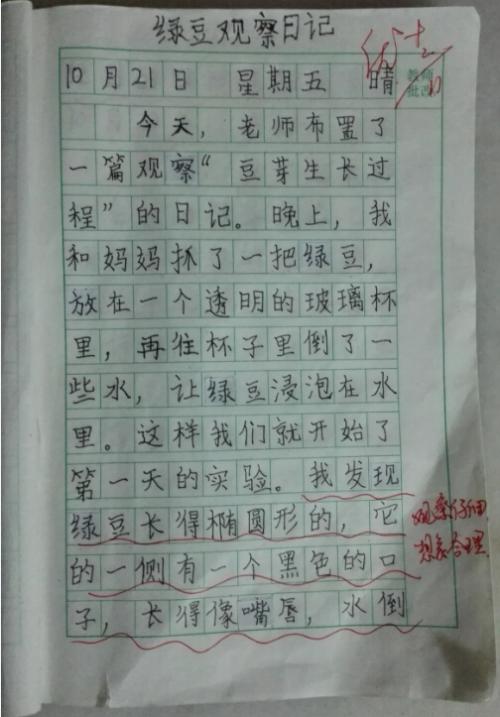 绿豆观察日记
优+2
10月21日 星期五 晴
教师
批改
今天，老师布置了
一篇观察“豆芽生长过
程”的日记。晚上，我
和妈妈抓了一把绿豆，
放在一个透明的玻璃杯
里，再往杯子里倒了一
些水，让绿豆浸泡在水
里。这样我们就开始了
第一天的实验。我发现
绿豆长得椭圆形的，它
观察仔细
的一侧有一个黑色的口
想象合理
子，长得像嘴唇，水倒